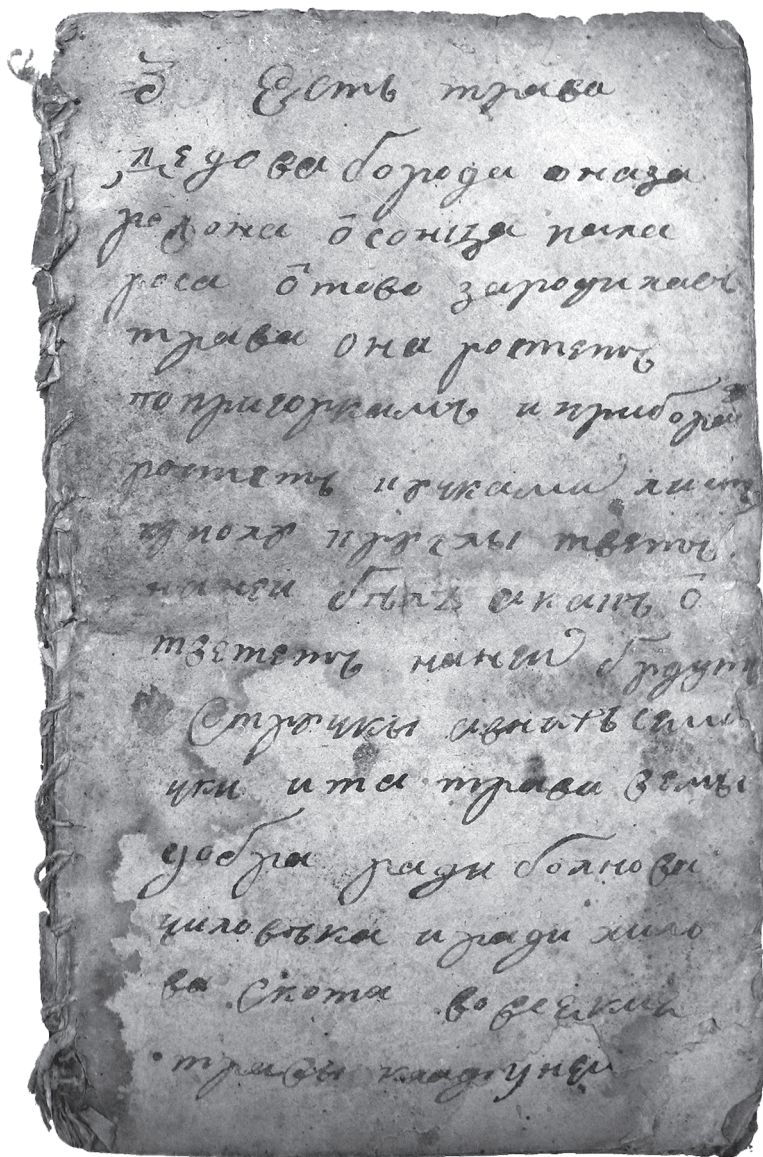 Есть трава
дедова борода она за
родона ѿ сонца пала
роса ѿ тово зародилась
трава она ростетъ
по пригоркамъ и при борах
ростетъ пучками листъ
кругл тветъ
на неи бѣлъ а какъ ѿ
тветётъ на неи будутъ
Стручки а в нихъ семе
чки и та трава велми
добра ради болнова
чиловѣка и ради жило
ва скота во всеки
травы клад у неи